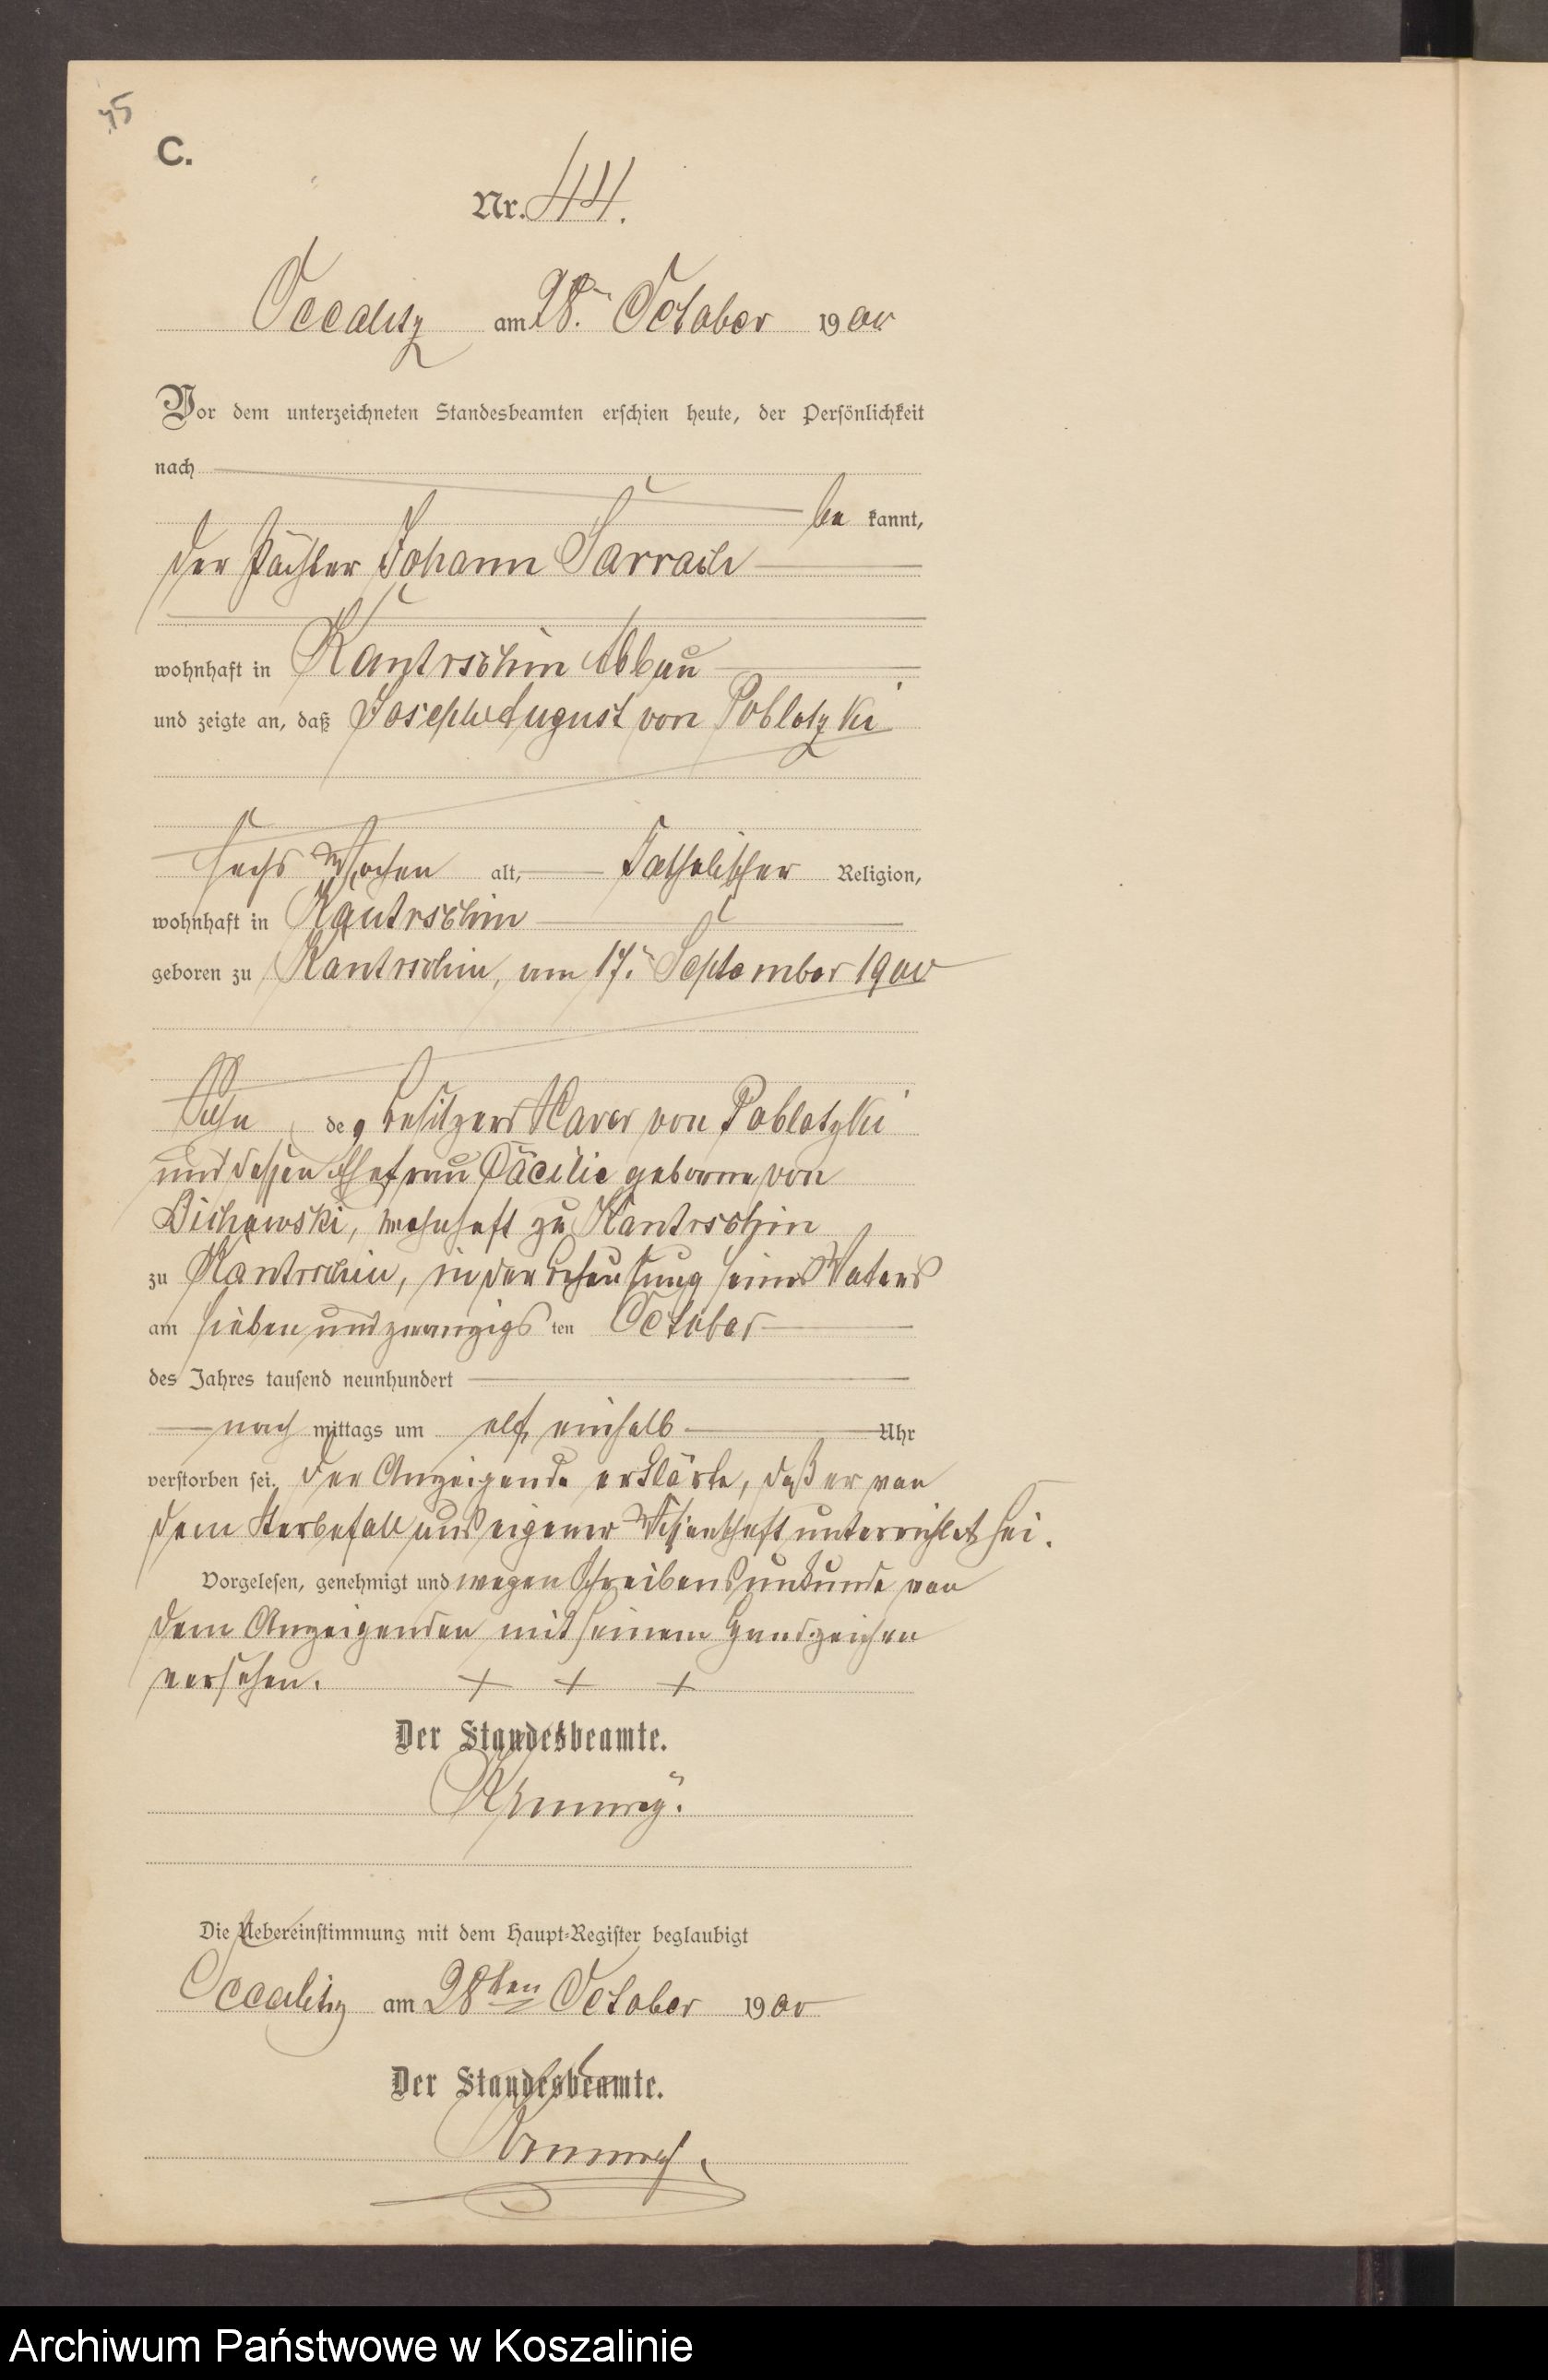 45
C.
Nr. 44.
Occalitz am 28. October 1900
Vor dem unterzeichneten Standesbeamten erschien heute, der Persönlichkeit
nach
be kannt,
der Pächter Johann Sarrach
wohnhaft in Kantrschin Abbau
und zeigte an, daß Joseph August von Poblotzki
sechs Wochen alt, katholischer Religion,
wohnhaft in Kantrschin
geboren zu Kantrschin, am 17. September 1900
Sohn des Besitzers Xaver von Poblotzki
und dessen Ehefrau Cäcilie geborne von
Dichowski, wohnhaft zu Kantrschin
zu Kantrschin, in der Behausung seines Vaters
am sieben und zwanzigs ten October
des Jahres tausend neunhundert
nach mittags um elf einhalb Uhr
verstorben sei. Der Anzeigende erklärte, daß er von
dem Sterbefall aus eigener Wissenschaft unterrichtet sei.
Vorgelesen, genehmigt und wegen Schreibensunkunde von
dem Anzeigenden mit seinem Handzeichen
versehen. + + +
Der Standesbeamte.
Die Uebereinstimmung mit dem Haupt-Register beglaubigt
Occalitz am 28ten October 1900
Der Standesbeamte.
Archiwum Państwowe w Koszalinie